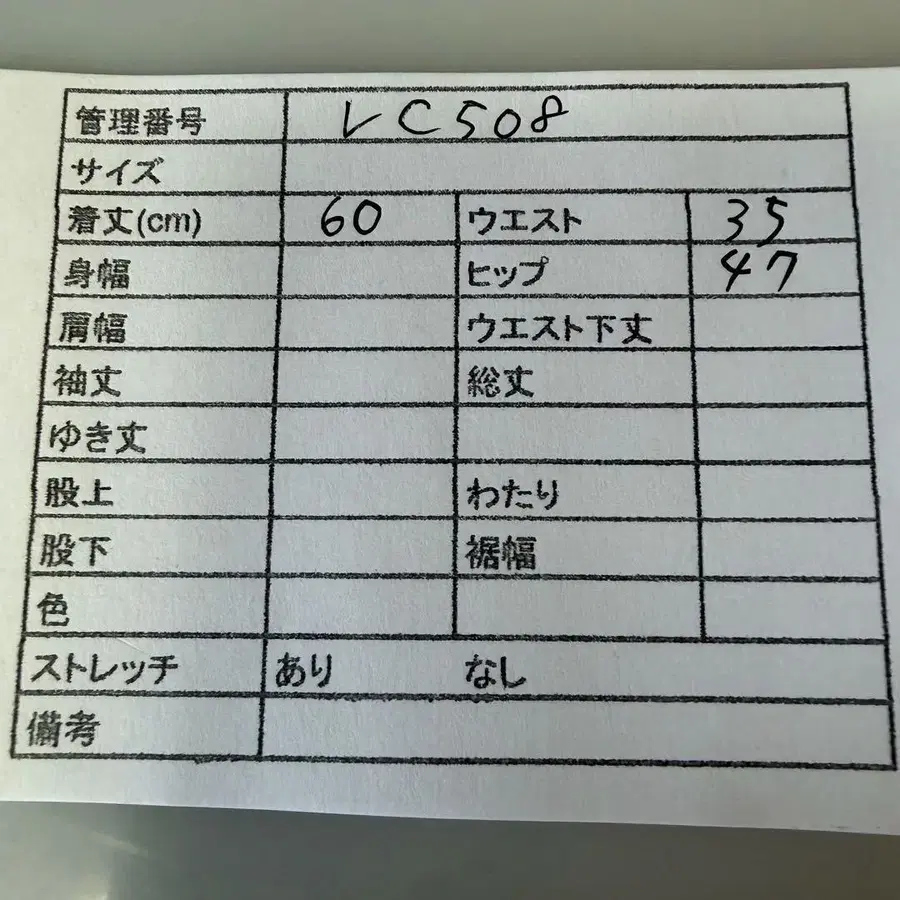 管理番号 LC508
サイズ
着丈(cm) 60 ウエスト 35
身幅 ヒップ 47
肩幅 ウエスト下丈
袖丈 総丈
ゆき丈
股上 わたり
股下 裾幅
色
ストレッチ あり なし
備考